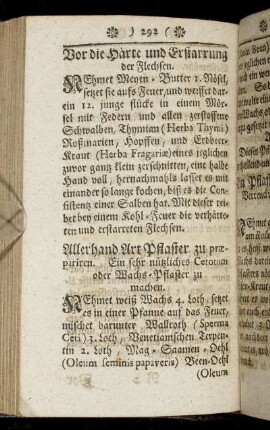 ❁ ) 292 ( ❁
Vor die Härte und Erstarrung
der Flechsen.
NEhmet Meyen-Butter 1. Nösel,
setzet sie aufs Feuer, und werffet dar-
ein 12. junge stücke in einem Mör-
sel mit Federn und allen zerstossene
Schwalben, Thymian (Herba Thymi)
Roßmarien, Hopffen, und Erdbeer-
Kraut (Herba Fragariæ) eines jeglichen
zuvor gantz klein zerschnitten, eine halbe
Hand voll, hernachmahls lasset es mit
einander so lange kochen, biß es die Con-
sistentz einer Salben hat. Mit dieser rei-
bet bey einem Kohl-Feuer die verhärte-
ten und erstarreten Flechsen.
Allerhand Art Pflaster zu præ-
pariren. Ein sehr nützliches Cerotum
oder Wachs-Pflaster zu
machen.
NEhmet weiß Wachs 4. Loth, setzet
es in einer Pfanne auf das Feuer,
mischet darunter Wallroth (Sperma
Ceti) 3. Loth, Venetianischen Terpen-
tin 2. Loth Mag-Saamen-Oehl
(Oleum seminis papaveris) Been-Oehl
(Oleum